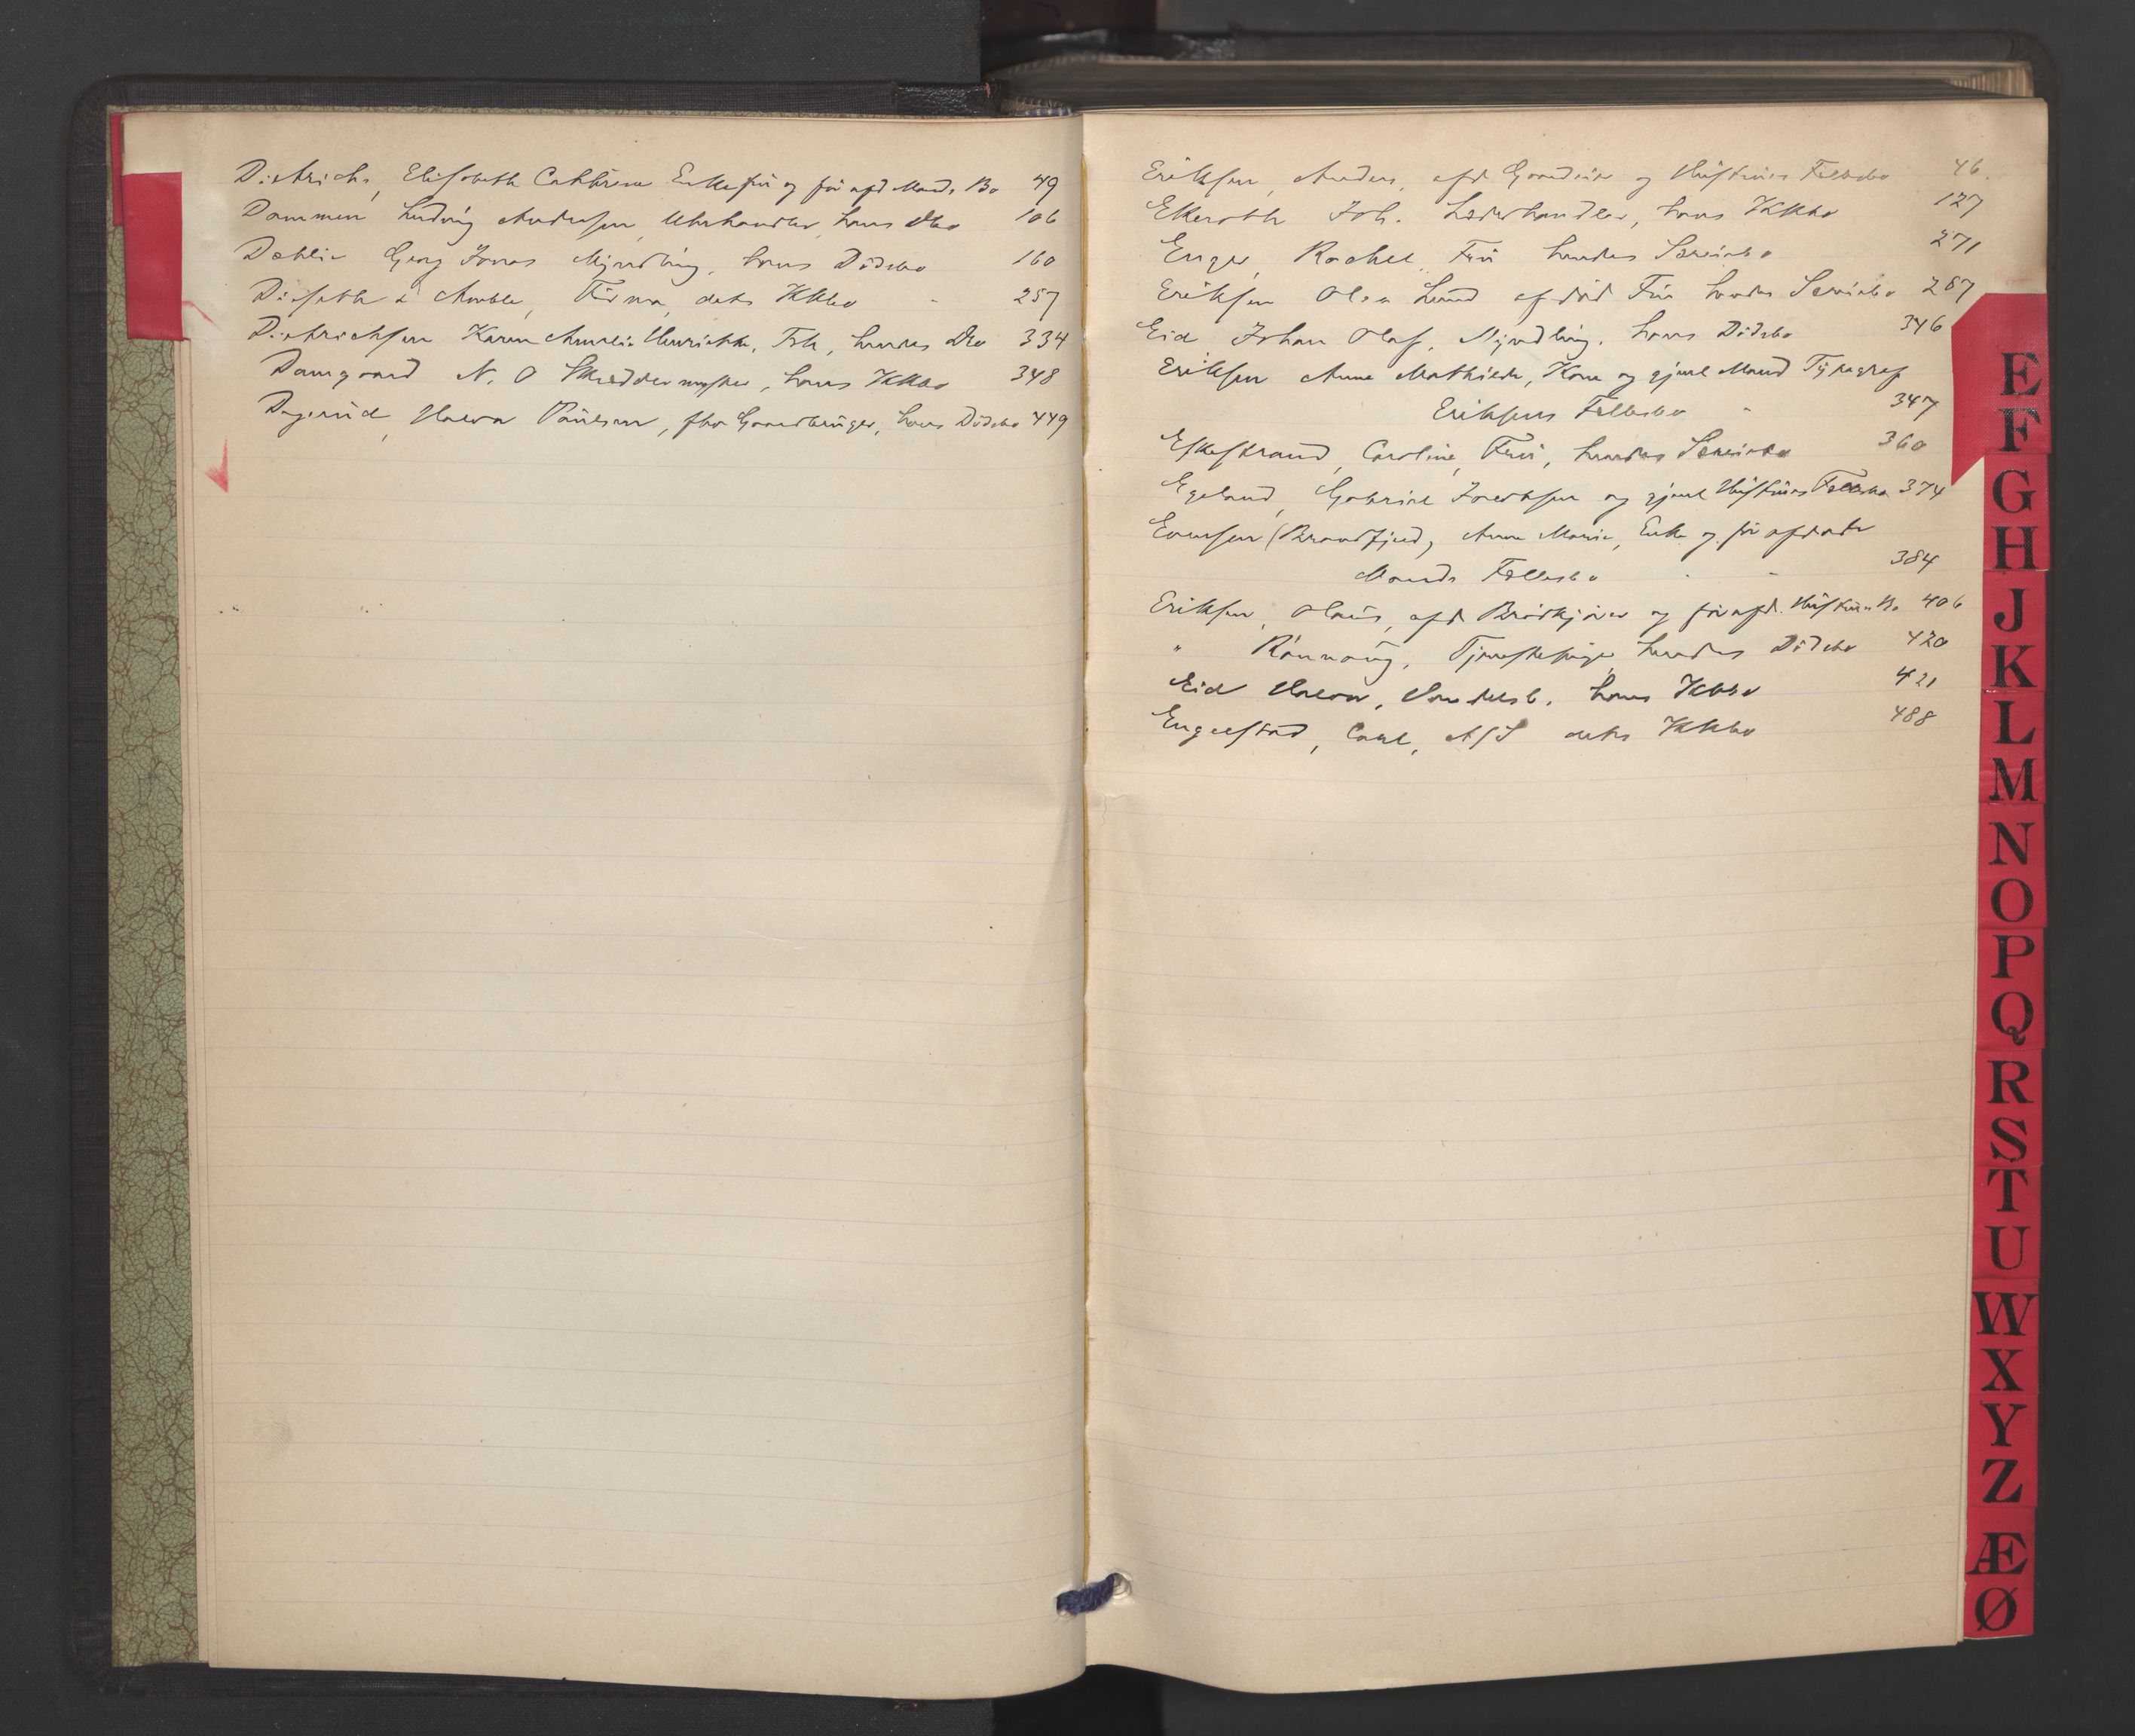 Dietrichs, Elisabeth Cathrine Enkefrú og før afd Mands Bo 49
Dammen Ludvig Andresen, Uhrhandler, hans Kkbo 106
Dæhlie Georg Jonas Myndling, hans Dödsbo 160
Diseth & Amble, Firma, dets Kkbo - 257
Dietrichsen Karen Amalie Henriette, Frk, hendes Dbo 334
Damgaard N. O Skræddermester, hans Kkbo 348
Dagerúd, Halvor Paúlsen, fhv Gaardbrúger, hans Dödsbo 449
Eriksen, Anders, afd Gaardeier og Hústrúes Fællesbo 46.
Ekeroth Joh. Læderhandler, hans Kkbo 127
Enger, Rachel, Frú hendes Særeiebo 271
Eriksen Olea Lund afdöd Frú hendes Særeiebo 287
Eid Johan Olaf, Myndling, hans Dödsbo 346
Eriksen Anne Mathilde, Kone og gjenl Mand Typograf
Eriksens Fællesbo - 347
Eskestrand, Caroline, Frú, hendes Særeiebo 360
Egeland, Gabriel and gjenl Hústrúes Fællesbo 374
Evensen (Brandfjeld) Anne Marie, Enke og før afdöde
Mands Fællesbo - - 384
Eriksen, Olaús, afd Brödkjörer og før afd. Hústrúes Bo 406
" Rönnaúg, Tjenestepige hendes Dödsbo 420
Eid Halvor, Handelsb. hans Kkbo 421
Engelstad, Carl, A/S dets Kkbo 488
E
F
G
H
J
K
L
M
N
O
P
Q
R
S
T
U
W
X
Y
Z
Æ
Ø